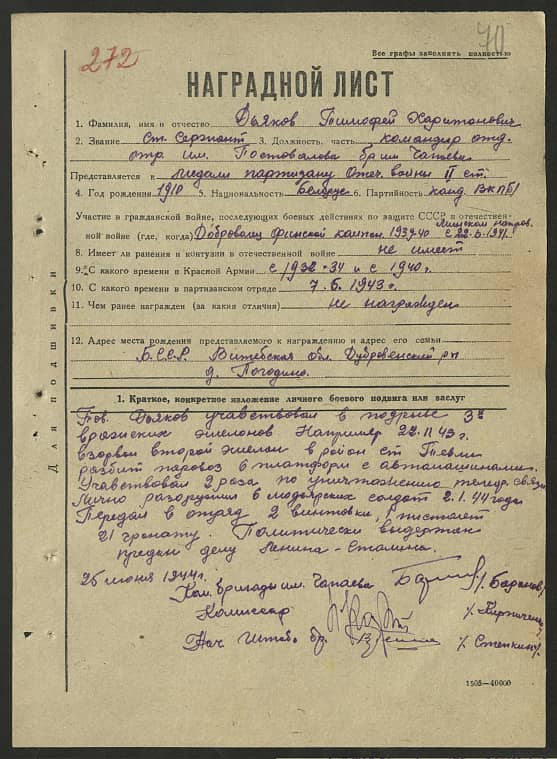 272
70
Все графы заполнять полностью
НАГРАДНОЙ ЛИСТ
1. Фамилия, имя и отчество Дьяков Тимофей Харитонович
2. Звание Ст. Сержант 3. Должность, часть командир отд.
отр. им. Постовалова бр. им. Чапаева
Представляется к медали партизану Отеч. войны II ст.
4. Год рождения 1910 5. Национальность Беларус 6. Партийность канд. ВКП(б)
Участие в гражданской войне, последующих боевых действиях по защите СССР и отечествен-
ной войне (где, когда) Доброволец финской кампан. 1939-40 с 22.6.1941. направ.
8. Имеет ли ранения и контузии в отечественной войне не имеет
9. С какого времени в Красной Армии с 1932-34 и с 1940г.
10. С какого времени в партизанском отряде 7.6.1943г.
11. Чем ранее награжден (за какия отличия) не награжден
12. Адрес места рождения представляемого к награждению и адрес его семьи
Б.С.С.Р. Витебская обл. Дубровенский р-н
д. Погодино.
Для подшивки
1. Краткое, конкретное изложение личного боевого подвига или заслуг
Тов. Дьяков учавствовал в подрыве 3х
вражеских эшелонов Например 22.11.43г.
взорвал второй эшелон в район ст.
разбит паровоз 6 платформ с автомашинами.
Учавствовал 2 раза по уничтожению телеф. связи
Лично разоружил 6 мадьярских солдат 2.1.44 года
Передал в отряд 2 винтовки, пистолет
21 гранату. Политически выдержан
предан делу Ленина-Сталина.
25 июня 1944г.
Ком. бригады им. Чапаева /Баранов/
Комиссар
Нач. Штаба бр. /Степкин/
1505—40000